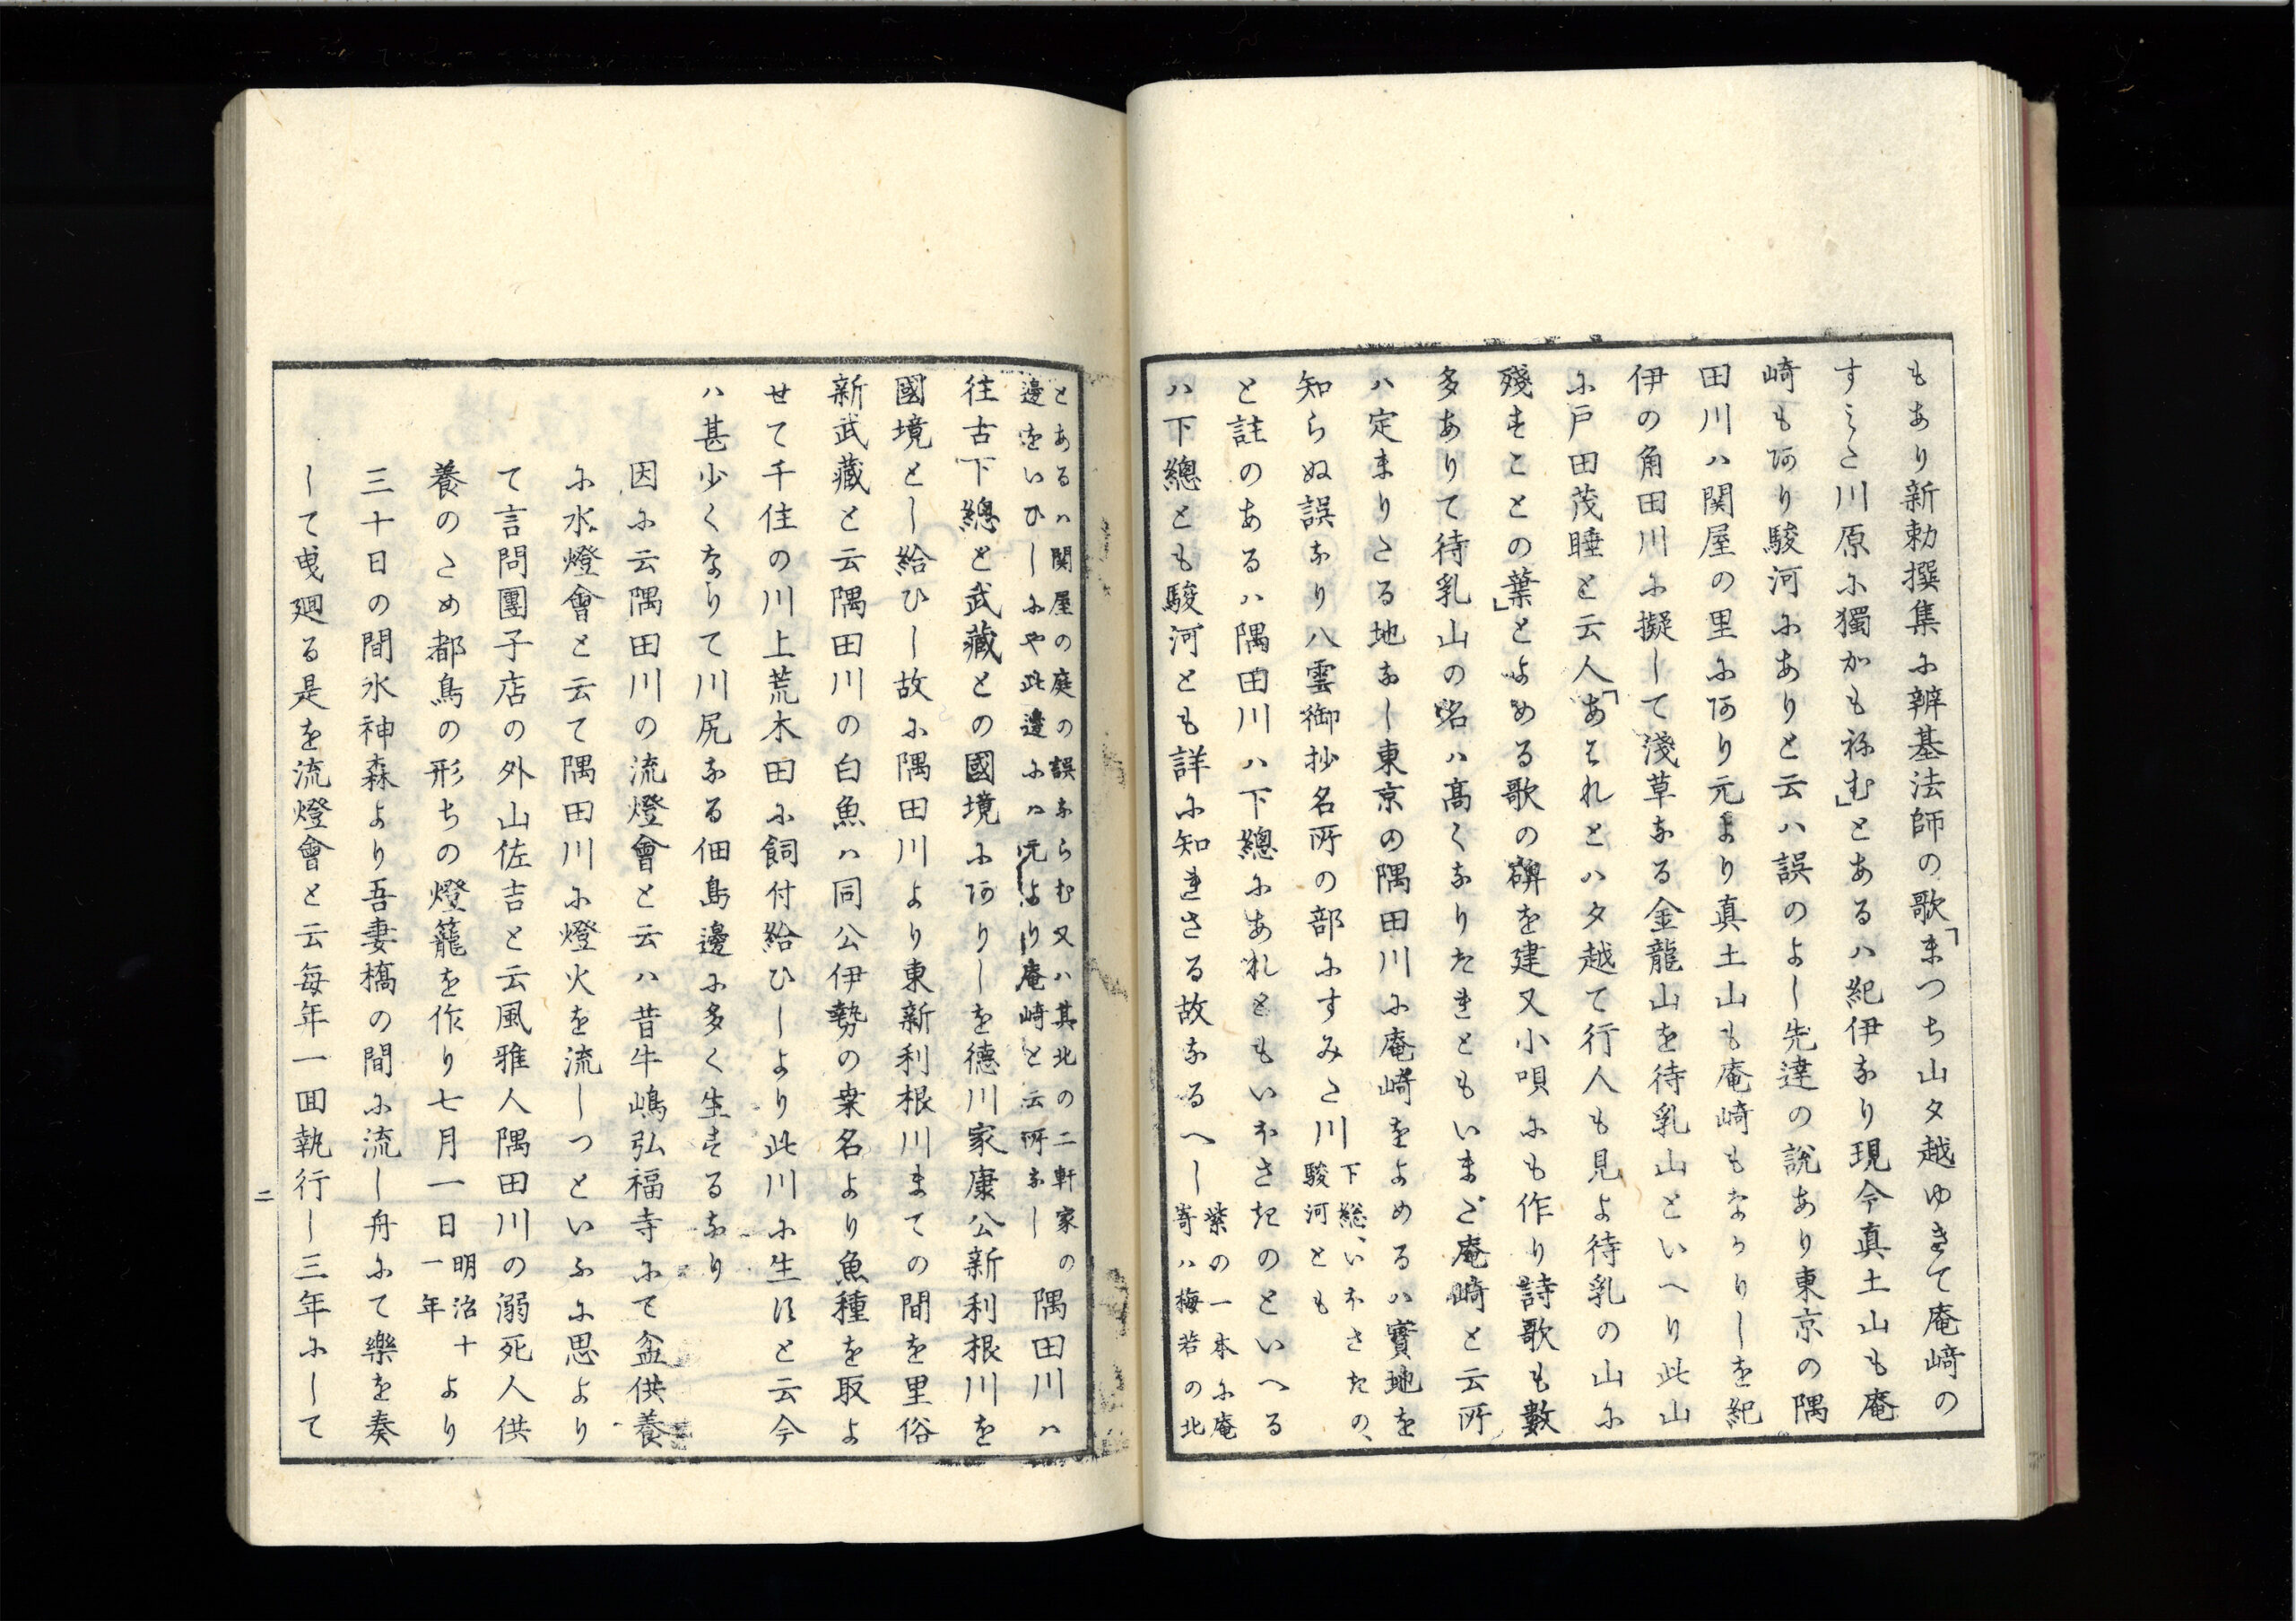 もあり新勅撰集に辨基法師の歌「まつち山夕越ゆきて庵﨑の
すミた川原に獨かも祢む」とあるハ紀伊なり現今真土山も庵
崎もあり駿河にありと云ハ誤のよし先達の説あり東京の隅
田川ハ関屋の里にあり元より真土山も庵崎もなかりしを紀
伊の角田川に擬して淺草なる金龍山を待乳山といへり此山
に戸田茂睡と云人「あはれとハ夕越て行人も見よ待乳の山に
殘すことの葉」とよめる歌の碑を建又小唄にも作り詩歌も數
多ありて待乳山の名ハ髙くなりたれともいまだ庵崎と云所
ハ定まりたる地なし東京の隅田川に庵崎をよめるハ實地を
知らぬ誤なり八雲御抄名所の部にすみた川
下総、いほさたの、
駿河とも
と註のあるハ隅田川ハ下總にあれともいほさたのといへる
ハ下總とも駿河とも詳に知れさる故なるへし
紫の一本に庵
﨑ハ梅若の北
とあるハ関屋の庭の誤ならむ又ハ其北の二軒家の
邊をいひしにや此邊にハ元より庵崎と云所なし
隅田川ハ
往古下總と武藏との國境にありしを徳川家康公新利根川を
國境とし給ひし故に隅田川より東新利根川まての間を里俗
新武藏と云隅田川の白魚ハ同公伊勢の桒名より魚種を取よ
せて千住の川上荒木田に飼付給ひしより此川に生すと云今
ハ甚少くなりて川尻なる佃島邊に多く生するなり
因に云隅田川の流燈會と云ハ昔牛嶋弘福寺にて盆供養
に水燈會と云て隅田川に燈火を流しつといふに思より
て言問團子店の外山佐吉と云風雅人隅田川の溺死人供
養のため都鳥の形ちの燈籠を作り七月一日
明治十
一年
より
三十日の間水神森より吾妻橋の間に流し舟にて樂を奏
して曵廻る是を流燈會と云毎年一回執行し三年にして
二